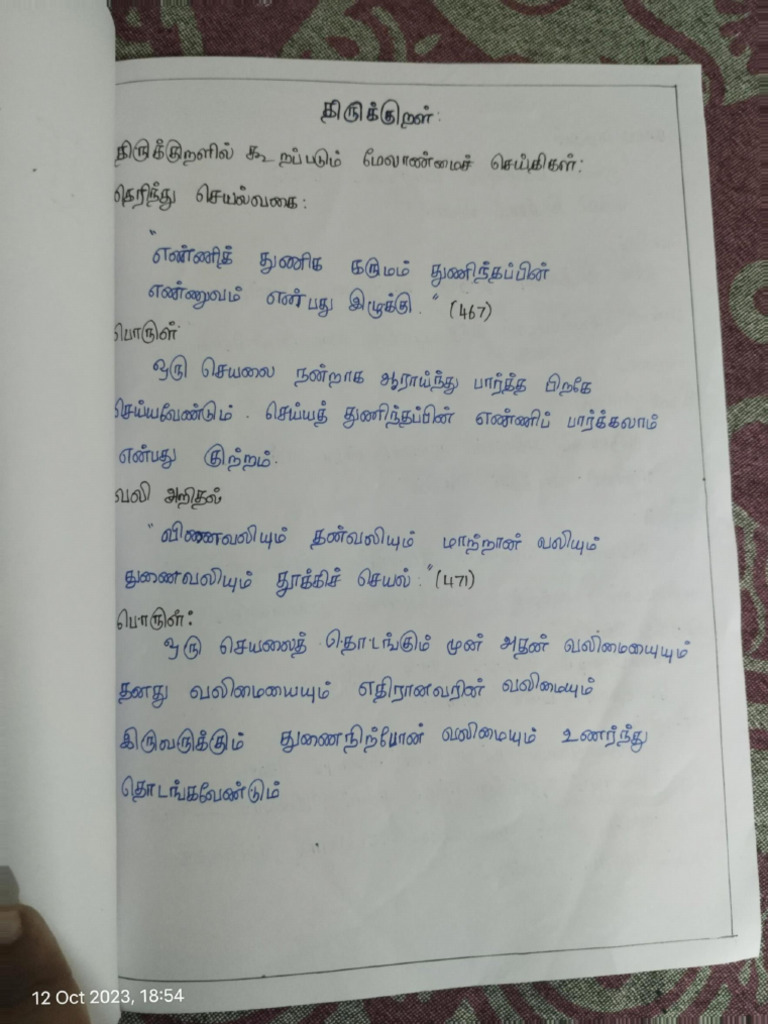 திருக்குறள்:
திருக்குறளில் கூறப்படும் மேலாண்மைச் செய்திகள்:
தெரிந்து செயல்வகை:
"எண்ணித் துணிக கருமம் துணிந்தப்பின்
எண்ணுவம் என்பது இழுக்கு." (467)
பொருள்
ஒரு செயலை நன்றாக ஆராய்ந்து பார்த்த பிறகே
செய்யவேண்டும். செய்யத் துணிந்தப்பின் எண்ணிப் பார்க்கலாம்
என்பது குற்றம்.
வலி அறிதல்
"வினைவலியும் தன்வலியும் மாற்றான் வலியும்
துணைவலியும் தூக்கிச் செயல்:" (471)
பொருள்:
ஒரு செயலைத் தொடங்கும் முன் அதன் வலிமையையும்
தனது வலிமையையும் எதிரானவரின் வலிமையும்
இருவருக்கும் துணைநிற்போன் வலிமையும் உணர்ந்து
தொடங்கவேண்டும்
12 Oct 2023, 18:54